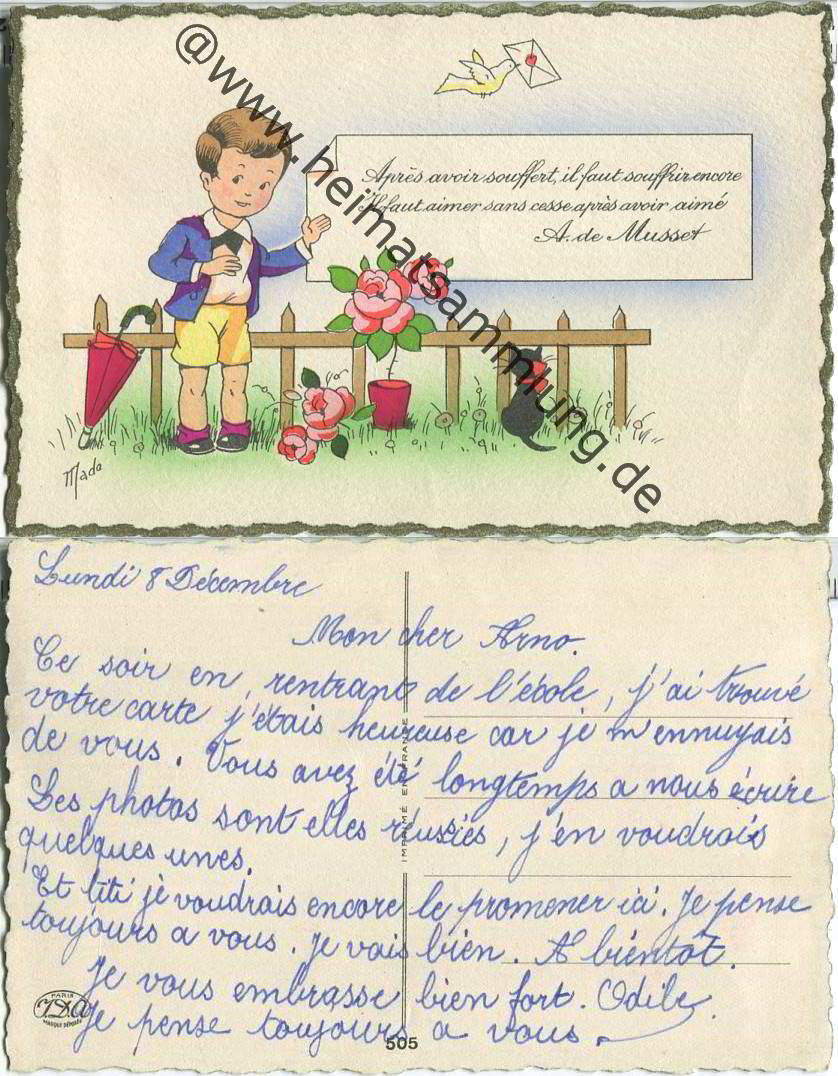 @www.heimatsammlung.de
Après avoir souffert, il faut souffrir encore
Il faut aimer sans cesse après avoir aimé
A. de Musset
Mado
Lundi 8 Décembre
Mon cher Arno.
Ce soir en rentrant de l'école, j'ai trouvé
votre carte j'étais heureuse car je m'ennuyais
de vous. Vous avez été longtemps a nous écrire
Les photos sont elles réussies, j'en voudrais
quelques unes.
Et titi je voudrais encore le promener ici. Je pense
toujours a vous. Je vais bien. A bientôt.
Je vous embrasse bien fort. Odile.
Je pense toujours a vous.
IMPRIMÉ EN FRANCE
PARIS
J.D.A
MARQUE DÉPOSÉE
505